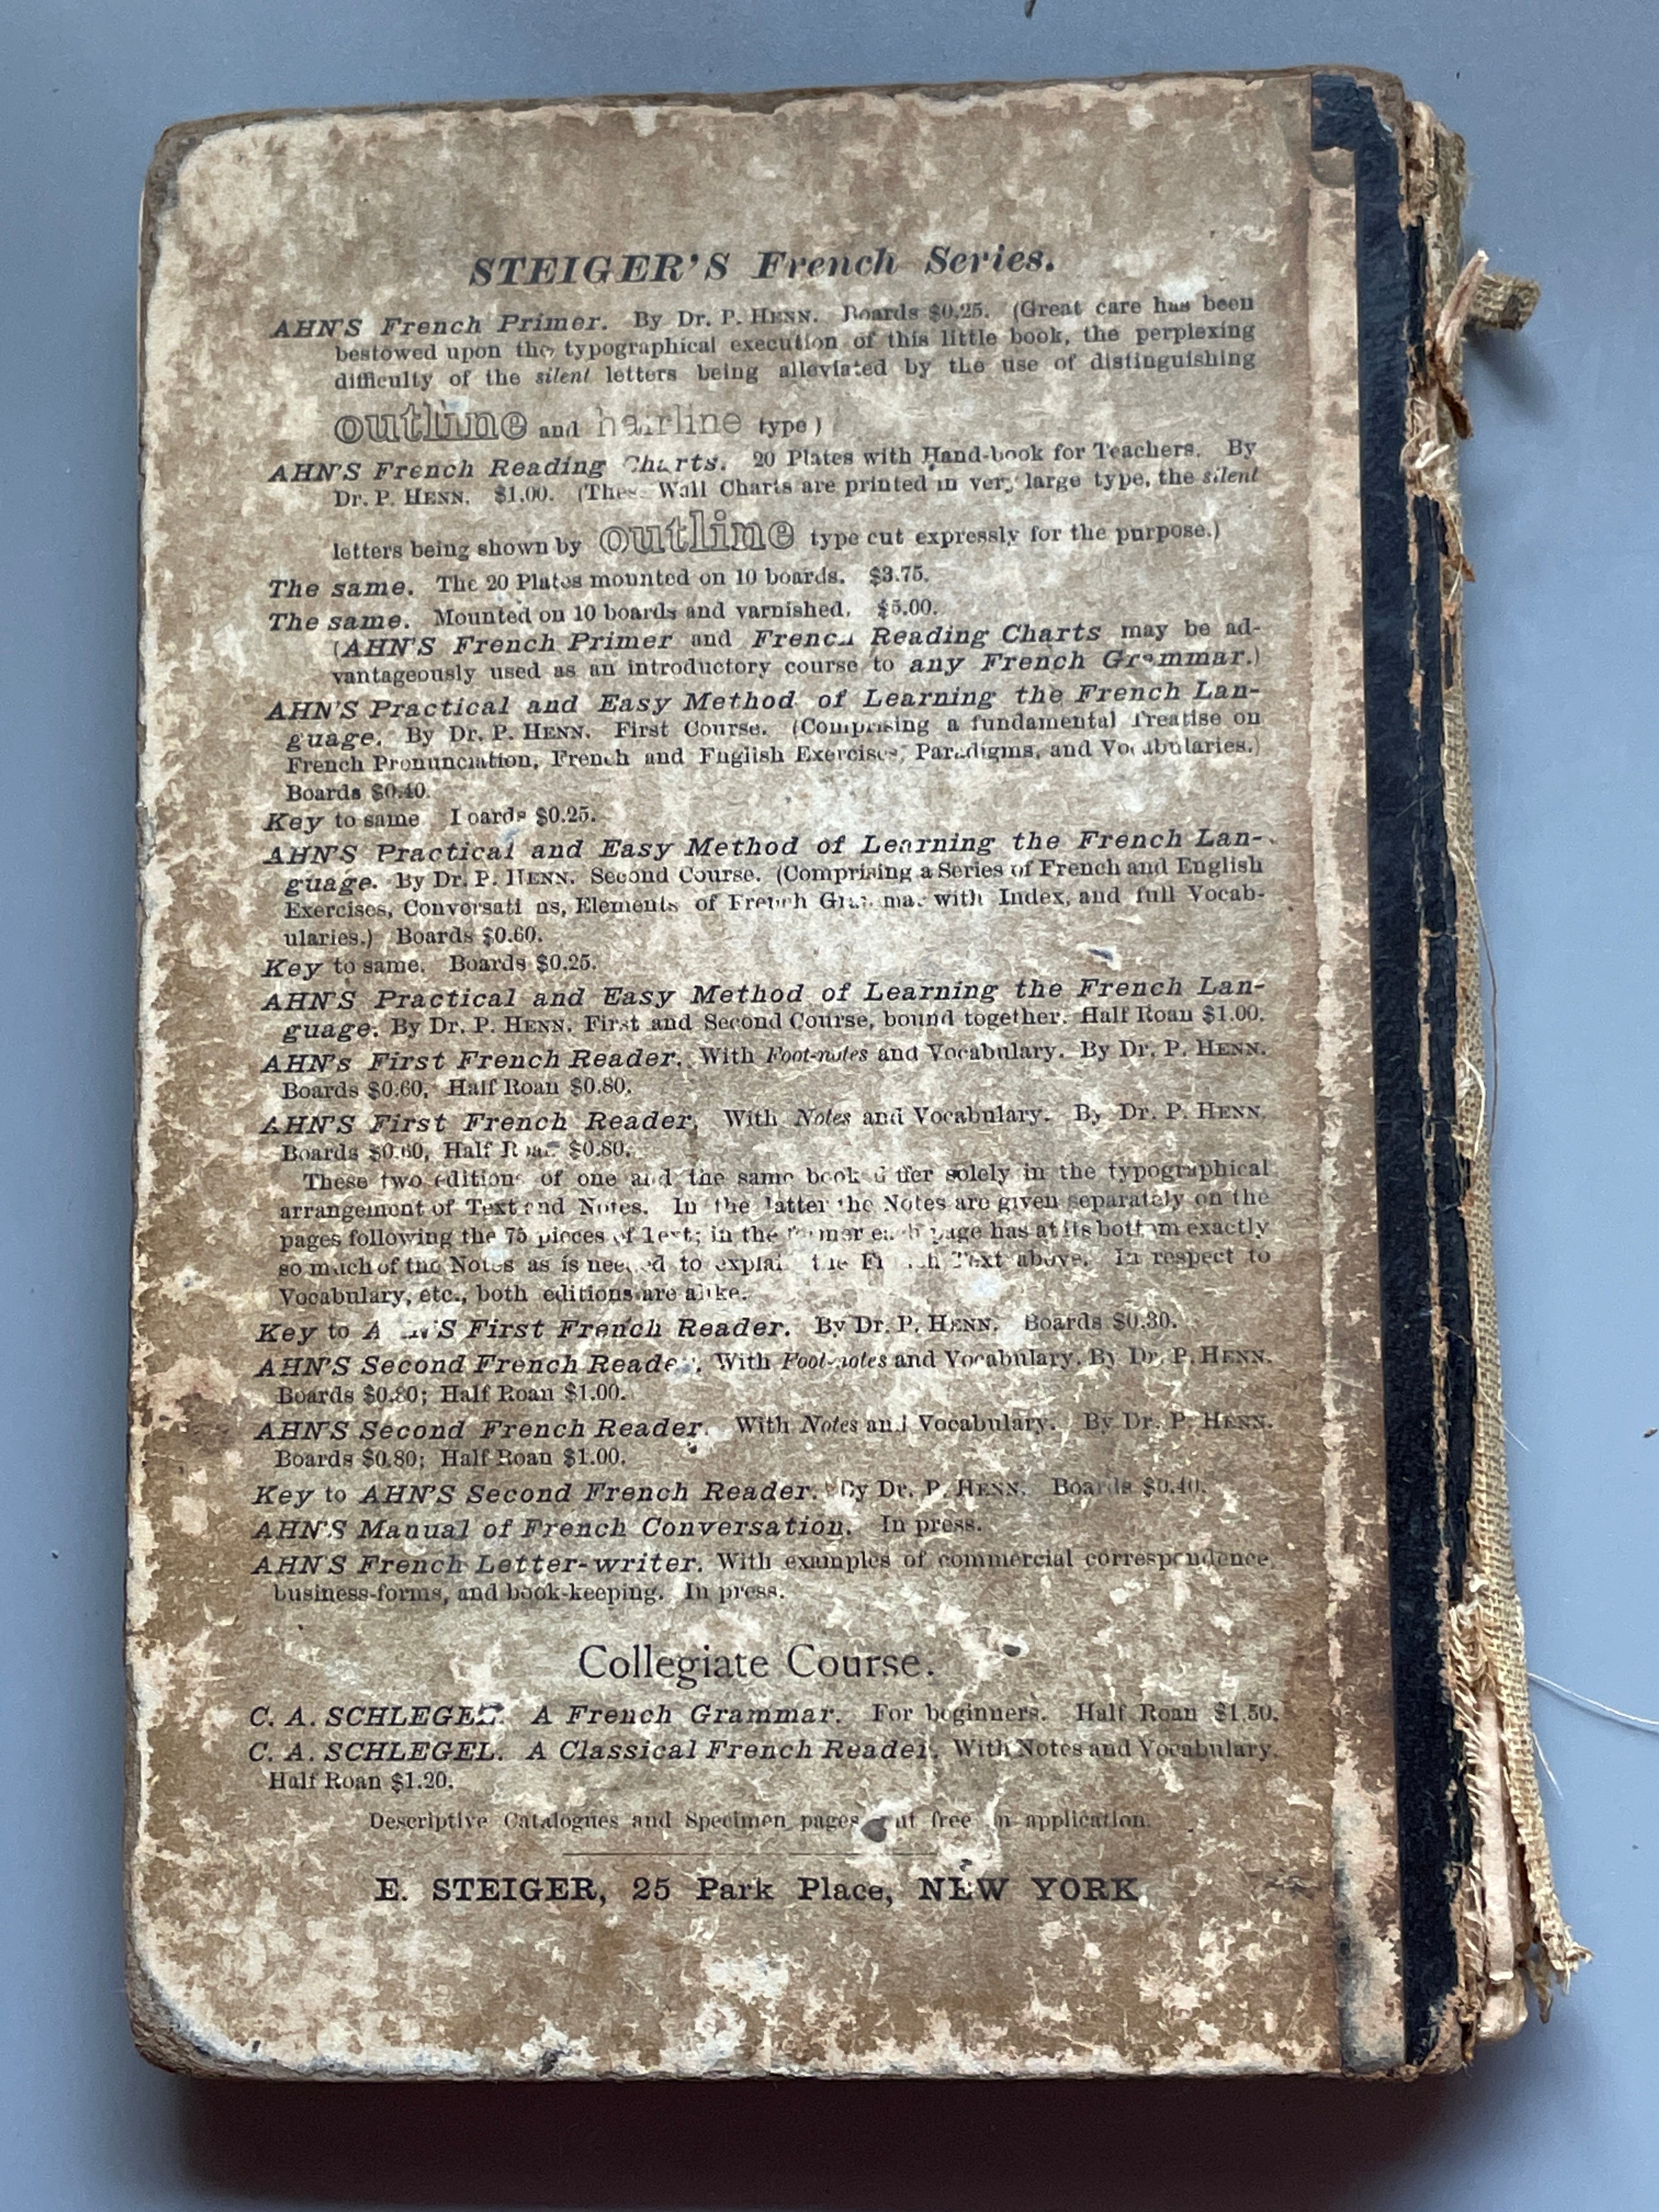 STEIGER'S French Series.
AHN'S French Primer. By Dr. P. HENN. Boards $0.25. (Great care has been
bestowed upon the typographical execution of this little book, the perplexing
difficulty of the silent letters being alleviated by the use of distinguishing
outline and hairline type)
AHN'S French Reading Charts. 20 Plates with Hand-book for Teachers. By
Dr. P. HENN. $1.00. (These Wall Charts are printed in very large type, the silent
letters being shown by outline type cut expressly for the purpose.)
The same. The 20 Plates mounted on 10 boards. $3.75.
The same. Mounted on 10 boards and varnished. $5.00.
(AHN'S French Primer and French Reading Charts may be ad-
vantageously used as an introductory course to any French Grammar.)
AHN'S Practical and Easy Method of Learning the French Lan-
guage. By Dr. P. HENN. First Course. (Comprising a fundamental Treatise on
French Pronunciation, French and English Exercises, Paradigms, and Vocabularies.)
Boards $0.40.
Key to same Boards $0.25.
AHN'S Practical and Easy Method of Learning the French Lan-
guage. By Dr. P. HENN. Second Course. (Comprising a Series of French and English
Exercises, Conversations, Elements of French Grammar with Index, and full Vocab-
ularies.) Boards $0.60.
Key to same. Boards $0.25.
AHN'S Practical and Easy Method of Learning the French Lan-
guage. By Dr. P. HENN. First and Second Course, bound together. Half Roan $1.00.
AHN's First French Reader. With Foot-notes and Vocabulary. By Dr. P. HENN.
Boards $0.60, Half Roan $0.80.
AHN'S First French Reader. With Notes and Vocabulary. By Dr. P. HENN.
Boards $0.60, Half Roan $0.80.
These two editions of one and the same book differ solely in the typographical
arrangement of Text and Notes. In the latter the Notes are given separately on the
pages following the 75 pieces of Text; in the former each page has at its bottom exactly
so much of the Notes as is needed to explain the French Text above. In respect to
Vocabulary, etc., both editions are alike.
Key to AHN'S First French Reader. By Dr. P. HENN. Boards $0.30.
AHN'S Second French Reader. With Foot-notes and Vocabulary. By Dr. P. HENN.
Boards $0.80; Half Roan $1.00.
AHN'S Second French Reader. With Notes and Vocabulary. By Dr. P. HENN.
Boards $0.80; Half Roan $1.00.
Key to AHN'S Second French Reader. By Dr. P. HENN. Boards $0.40.
AHN'S Manual of French Conversation. In press.
AHN'S French Letter-writer. With examples of commercial correspondence,
business-forms, and book-keeping. In press.
Collegiate Course.
C. A. SCHLEGEL. A French Grammar. For beginners. Half Roan $1.50.
C. A. SCHLEGEL. A Classical French Reader. With Notes and Vocabulary.
Half Roan $1.20.
Descriptive Catalogues and Specimen pages free on application.
E. STEIGER, 25 Park Place, NEW YORK